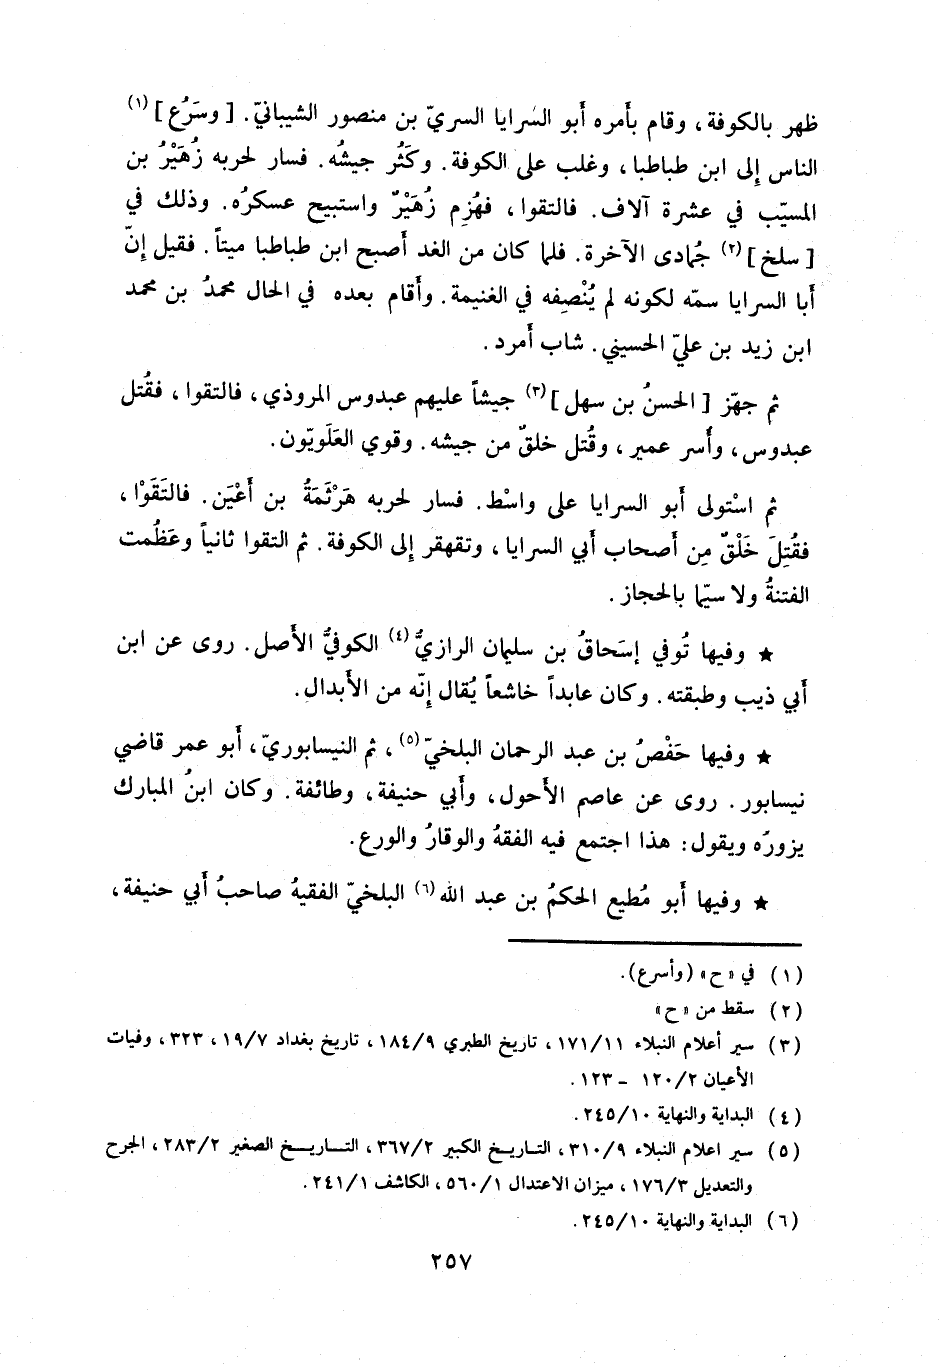 ظهر بالكوفة، وقام بأمره أبو السَرايا السريّ بن منصور الشيبانيّ. [ وسَرُع ] (١)
الناس إلى ابن طباطبا، وغلب على الكوفة. وكَثُر جيشُه. فسار لحربه زُهَيْرُ بن
المسيّب في عشرة آلاف. فالتقوا، فهُزِم زُهَيْرٌ واستبيح عسكرُه. وذلك في
[ سلخ ] (٢) جُمادى الآخرة. فلما كان من الغد أصبح ابن طباطبا ميتاً. فقيل إنّ
أبا السرايا سمّه لكونه لم يُنْصِفه في الغنيمة. وأقام بعده في الحال محمدُ بن محمد
ابن زيد بن عليّ الحسيني. شاب أمرد.
ثم جهّز [ الحسنُ بن سهل ] (٣) جيشاً عليهم عبدوس المروذي، فالتقوا، فقُتل
عبدوس، وأسر عمير، وقُتل خلقٌ من جيشه. وقوي العَلَويّون.
ثم اسْتولى أبو السرايا على واسْط. فسار لحربه هَرْثَمَةُ بن أَعْيَن. فالتَقَوْا،
فقُتِلَ خَلْقٌ مِن أصحاب أبي السرايا، وتقهقر إلى الكوفة. ثم التقوا ثانياً وعَظُمت
الفتنةُ ولا سيّما بالحجاز.
★ وفيها تُوفي إسَحاقُ بن سليمان الرازيُّ (٤) الكوفيُّ الأصل. روى عن ابن
أبي ذيب وطبقته. وكان عابداً خاشعاً يُقال إنّه من الأبدال.
★ وفيها حَفْصُ بن عبد الرحمان البلخيّ (٥)، ثم النيسابوريّ، أبو عمر قاضي
نيسابور. روى عن عاصم الأحول، وأبي حنيفة، وطائفة. وكان ابنُ المبارك
يزورُه ويقول: هذا اجتمع فيه الفقهُ والوقارُ والورع.
★ وفيها أبو مُطيع الحكمُ بن عبد الله (٦) البلخيّ الفقيهُ صاحبُ أبي حنيفة،
(١) في «ح» (وأسرع).
(٢) سقط من «ح»
(٣) سير أعلام النبلاء ١٧١/١١، تاريخ الطبري ١٨٤/٩، تاريخ بغداد ١٩/٧، ٣٢٣، وفيات
الأعيان ١٢٠/٢ - ١٢٣.
(٤) البداية والنهاية ٢٤٥/١٠.
(٥) سير اعلام النبلاء ٣١٠/٩، التاريخ الكبير ٣٦٧/٢، التاريخ الصغير ٢٨٣/٢، الجرح
والتعديل ١٧٦/٣، ميزان الاعتدال ٥٦٠/١، الكاشف ٢٤١/١.
(٦) البداية والنهاية ٢٤٥/١٠.
٢٥٧